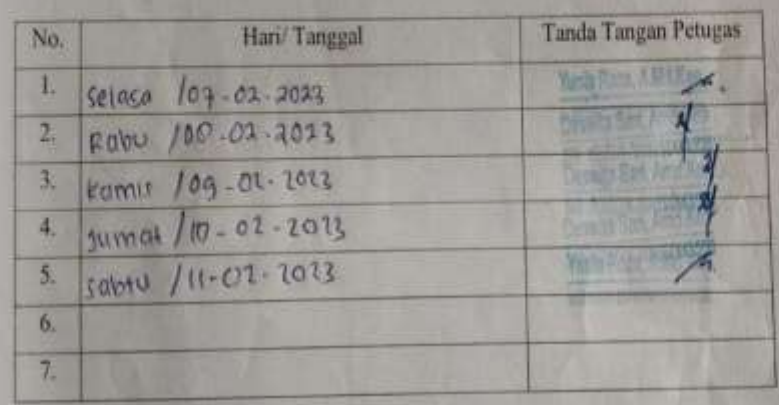 No. Hari/ Tanggal Tanda Tangan Petugas
1. Selasa /07-02-2023
2. Rabu /08-02-2023
3. Kamis /09-02-2023
4. Jumat /10-02-2023
5. Sabtu /11-02-2023
6.
7.